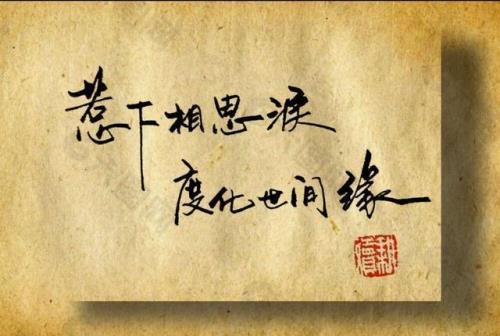 惹下相思泪
度化世间缘